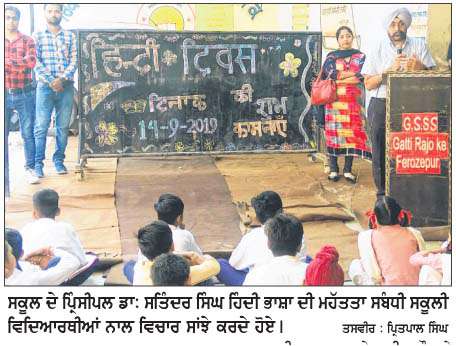 हिन्दी दिवस
दिनांक की शुभ
14-9-2019 कामनाएँ
G.S.S.S
Gatti Rajo ke
Ferozepur.
ਸਕੂਲ ਦੇ ਪ੍ਰਿੰਸੀਪਲ ਡਾ: ਸਤਿੰਦਰ ਸਿੰਘ ਹਿੰਦੀ ਭਾਸ਼ਾ ਦੀ ਮਹੱਤਤਾ ਸਬੰਧੀ ਸਕੂਲੀ
ਵਿਦਿਆਰਥੀਆਂ ਨਾਲ ਵਿਚਾਰ ਸਾਂਝੇ ਕਰਦੇ ਹੋਏ।
ਤਸਵੀਰ : ਪ੍ਰਿਤਪਾਲ ਸਿੰਘ